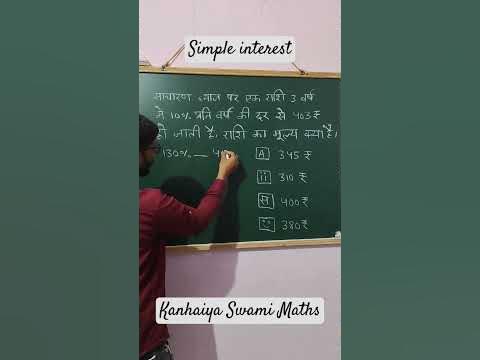 Simple interest
साधारण ब्याज पर एक राशि 3 वर्ष
में 10% प्रति वर्ष की दर से 403₹
हो जाती है, राशि का मूल्य क्या है।
130% — 40
A 345 ₹
ii 310 ₹
स 400 ₹
380 ₹
Kanhaiya Swami Maths